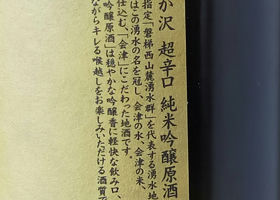 か沢 超辛口 純米吟醸原酒
指定「磐梯西山麓湧水群」を代表する湧水地
はこの湧水の名を冠し、会津の水、会津の米、
仕込む、「会津」にこだわった地酒です。
吟醸原酒」は穏やかな吟醸香に軽快な飲み口、
ながらキレる喉越しをお楽しみいただける酒質で